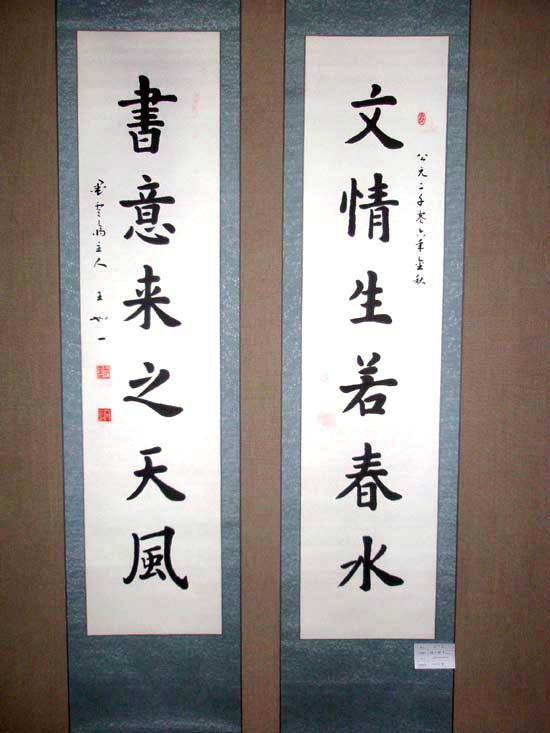 文情生若春水
公元二千零六年金秋
書意来之天風
主人 王
一